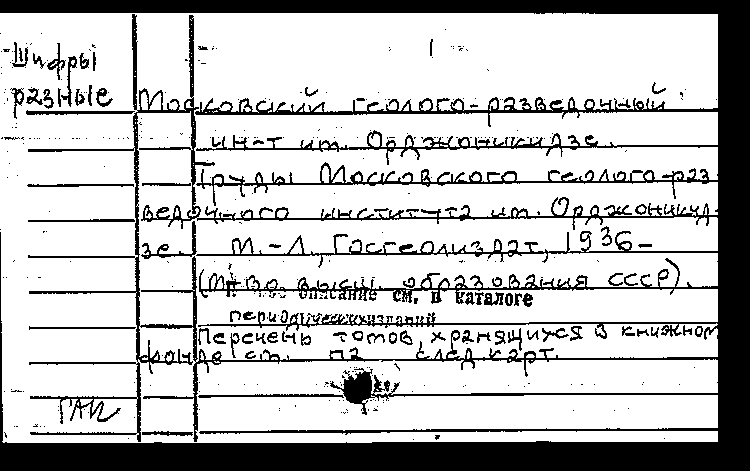 Шифры
разные
1
Московский геолого-разведочный
ин-т им. Орджоникидзе.
Труды Московского геолого-раз
ведочного института им. Орджоникид-
зе. М.-Л., Госгеолиздат, 1936-
(М-во высш. образования СССР).
описание см. в каталоге
периодических изданий
Перечень томов, хранящихся в книжном
фонде см. на след. карт.